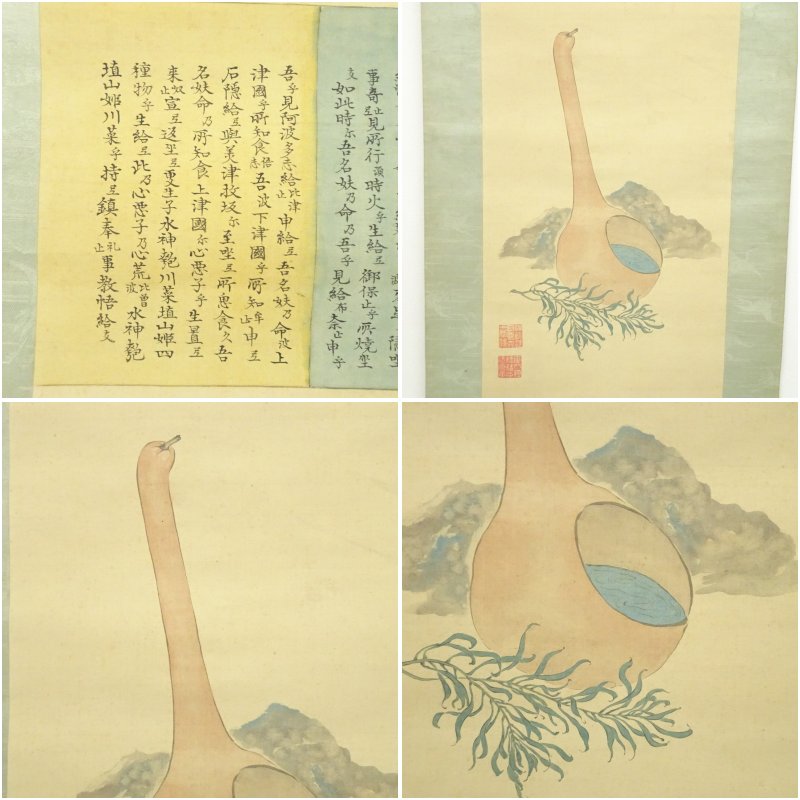 事奇止弖見所行須時火乎生給弖御保止乎所燒坐
支如此時尓吾名妋乃命乃吾乎見給布奈止申乎
吾乎見阿波多志給比津止申給弖吾名妋乃命波上
津國乎所知食倍志吾波下津國乎所知牟止申弖
石隱給弖與美津枚坂尓至坐弖所思食久吾
名妋命乃所知食上津國尓心悪子乎生置弖
來奴止宣弖返坐弖更生子水神匏川菜埴山姫四
種物乎生給弖此乃心悪子乃心荒比曾波水神匏
埴山姫川菜乎持弖鎮奉礼止事教悟給支